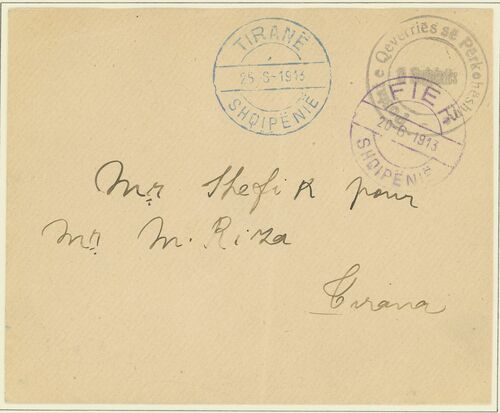 TIRANË
25-6-1913
SHQIPËNIË
e Qeverriës së Përkoheshme
FIER
20-6-1913
SHQIPËNIË
Mr Shefik pour
Mr M. Riza
Tirana